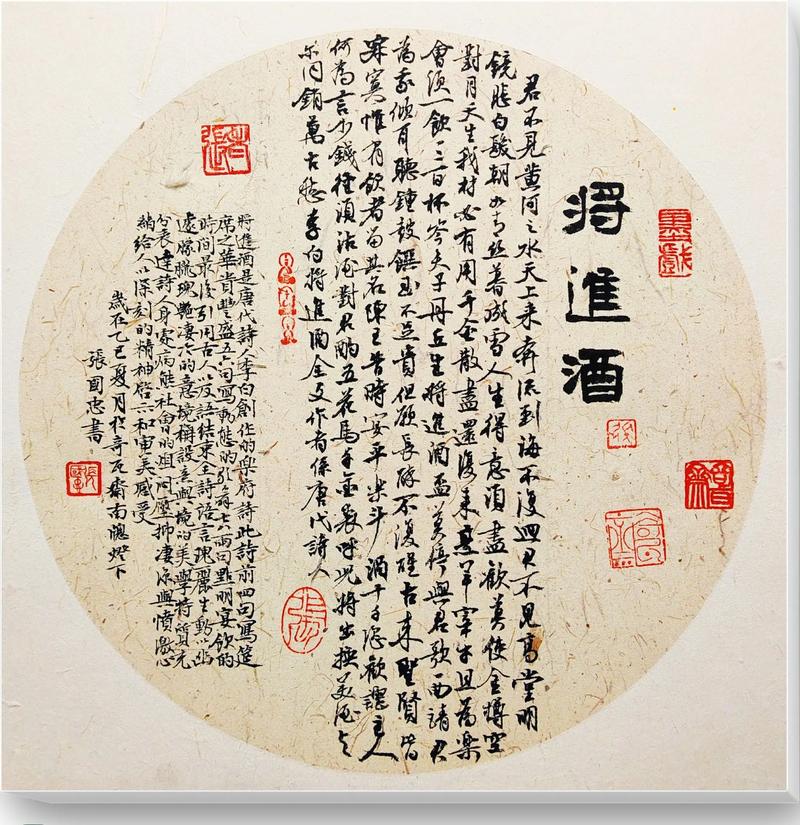 將進酒
君不見黃河之水天上來奔流到海不復回君不見高堂明
鏡悲白髮朝如青絲暮成雪人生得意須盡歡莫使金樽空
對月天生我材必有用千金散盡還復來烹羊宰牛且為樂
會須一飲三百杯岑夫子丹丘生將進酒盃莫停與君歌一曲請君
為我傾耳聽鐘鼓饌玉不足貴但願長醉不復醒古來聖賢皆
寂寞惟有飲者留其名陳王昔時宴平樂斗酒十千恣歡謔主人
何為言少錢徑須沽酒對君酌五花馬千金裘呼兒將出換美酒與
尔同銷萬古愁李白將進酒全文作者係唐代詩人
將進酒是唐代詩人李白創作的樂府詩此詩前四句寫筵
席之華貴豐盛五六句寫動態的歌舞七八兩句點明宴飲的
時間最後引用古人以反語結束全詩語言瑰麗生動以幽
處朦朧瑰艷淒冷的意境構設意與境的美學特質充
分表達詩人身處病態社會的沮悶壓抑淒涼與憤激心
緒給人以深刻的精神啟示和審美感受
歲在乙巳夏月於奇石齋南窗燈下
張國忠書